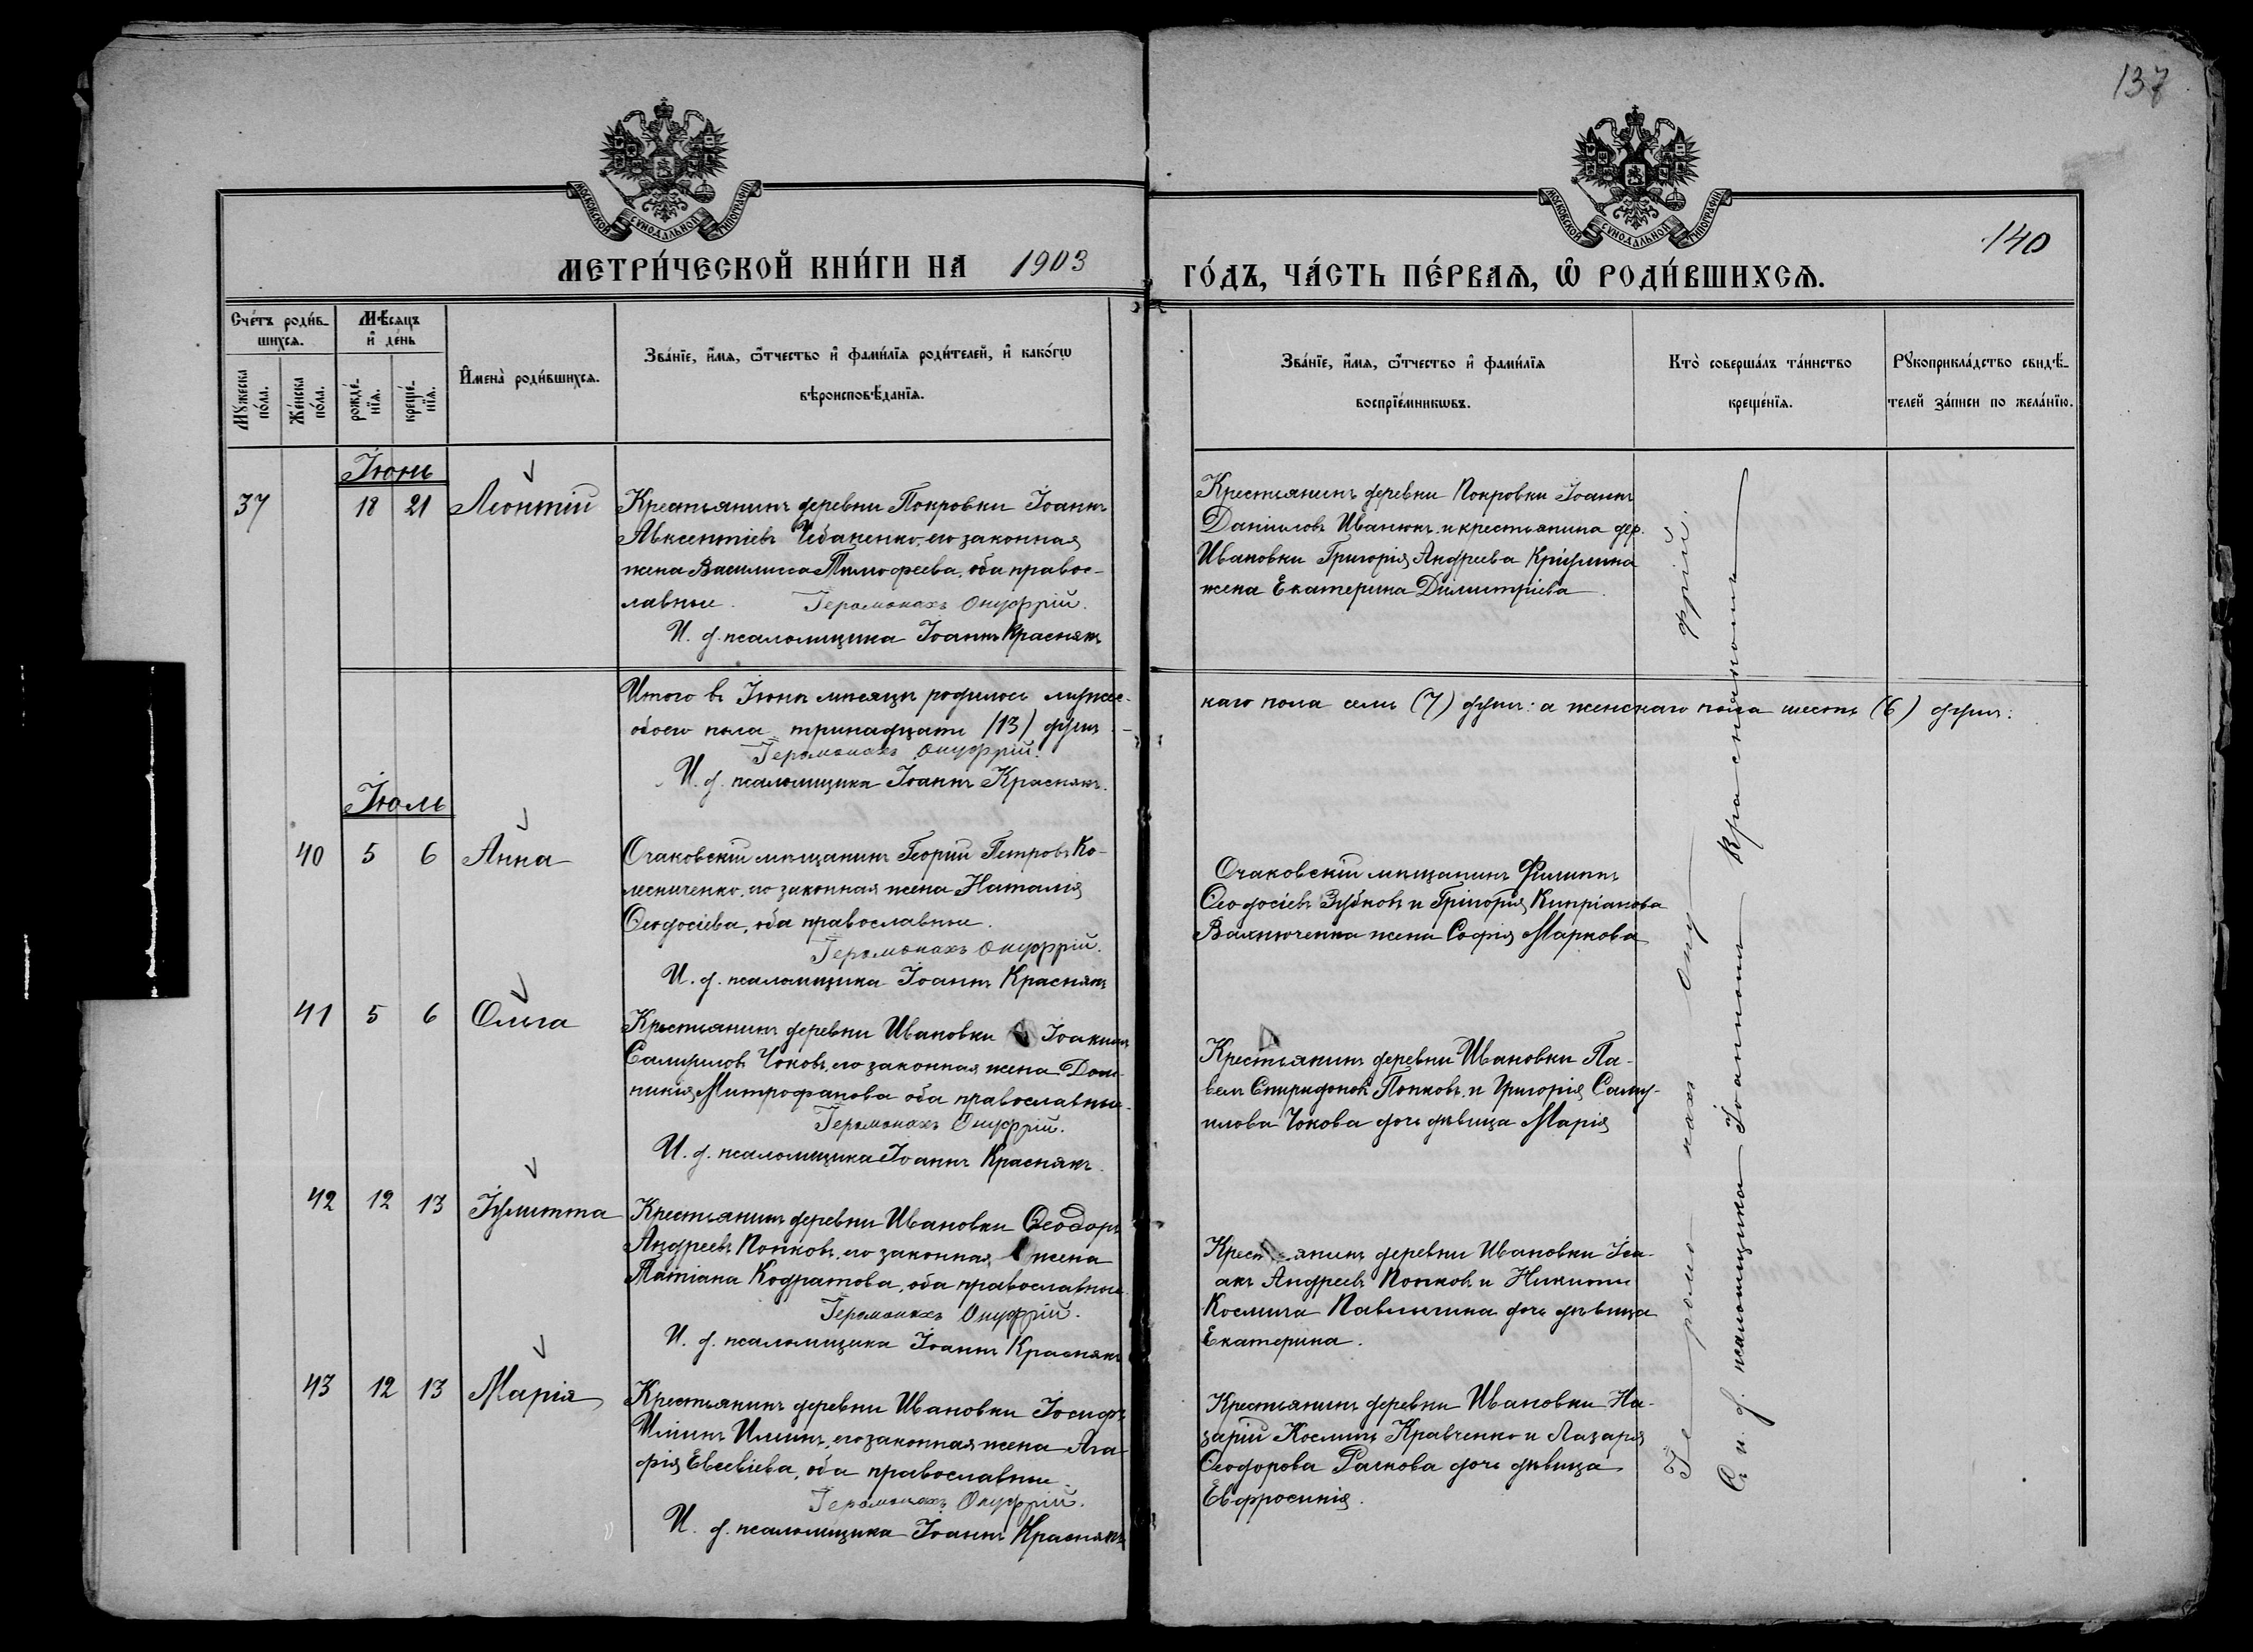 137
140
МОСКОВСКОЙ СѴНОДАЛЬНОЙ ТИПОГРАФІИ
МОСКОВСКОЙ СѴНОДАЛЬНОЙ ТИПОГРАФІИ
МЕТРИ́ЧЕСКОЙ КНИ́ГИ НА 1903
ГО́ДЪ, ЧА́СТЬ ПЕ́РВАѦ, Ѽ РОДИ́ВШИХСѦ.
Сче́тъ роди́в-
шихсѧ.
Мꙋжеска по́ла.
Же́нска по́ла.
Мѣ́сѧцъ
и҆ де́нь
рожде́-
нїѧ.
креще́-
нїѧ.
И҆мена̀ роди́вшихсѧ.
Зва́нїе, и҆́мѧ, ѻ҆́тчество и҆ фами́лїѧ роди́телей, и҆ како́гѡ
вѣроисповѣ́данїѧ.
Зва́нїе, и҆́мѧ, ѻ҆́тчество и҆ фами́лїѧ
воспрїе́мникѡвъ.
Кто̀ соверша́лъ та́инство
креще́нїѧ.
Рꙋкоприкла́дство свидѣ́-
телей за́писи по жела́нїю.
Іюнь
37 18 21 Леонтій
Крестьянинъ деревни Покровки Іоаннъ
Авксентіевъ Чебаненко, его законная
жена Василисса Тимофеева, оба правос-
лавные.
Іеромонахъ Онуфрій.
И. д. псаломщика Іоаннъ Краснякъ
Крестьянинъ деревни Покровки Іоаннъ
Даніиловъ Иванюкъ и крестьянина дер.
Ивановки Григорія Андреева
жена Екатерина Димитріева
Итого въ Іюнѣ мѣсяцѣ родилось мужес-
каго пола семь (7) душъ: а женскаго пола шесть (6) душъ:
обоего пола тринадцать (13) душъ
Іеромонахъ Онуфрій.
И. д. псаломщика Іоаннъ Краснякъ.
Іюль
40 5 6 Анна
Очаковскій мѣщанинъ Георгій Петровъ Ко-
лесниченко, его законная жена Наталія
Ѳеодосіева, оба православные.
Іеромонахъ Онуфрій.
И. д. псаломщика Іоаннъ Краснякъ
Очаковскій мѣщанинъ Филиппъ
Ѳеодосіевъ Зубковъ и Григорія Кипріанова
Вахнюченка жена Софія Маркова
41 5 6 Ольга
Крестьянинъ деревни Ивановки Іоакимъ
Самуиловъ Чоковъ, его законная жена Дом-
никія Митрофанова оба православные.
Іеромонахъ Онуфрій.
И. д. псаломщика Іоаннъ Краснякъ.
Крестьянинъ деревни Ивановки Па-
велъ Спиридоновъ Попковъ и Григорія Саму-
илова Чокова дочь дѣвица Марія
42 12 13 Іулитта
Крестьянинъ деревни Ивановки Ѳеодоръ
Андреевъ Попковъ, его законная жена
Татіана Кодратова, оба православные
Іеромонахъ Онуфрій.
И. д. псаломщика Іоаннъ Краснякъ
Крестьянинъ деревни Ивановки Іса-
акъ Андреевъ Попковъ и Никиты
Космича Павлычина дочь дѣвица
Екатерина.
43 12 13 Марія
Крестьянинъ деревни Ивановки Іосифъ
Ильинъ Ильинъ, его законная жена Ага-
фія Евсевіева, оба православные.
Іеромонахъ Онуфрій.
И. д. псаломщика Іоаннъ Краснякъ
Крестьянинъ деревни Ивановки На-
зарій Космичъ Кравченко и Лазаря
Ѳеодорова дочь дѣвица
Евфросинія.
Іеромонахъ Онуфрій.
Съ и. д. псаломщика Іоанномъ Краснякомъ